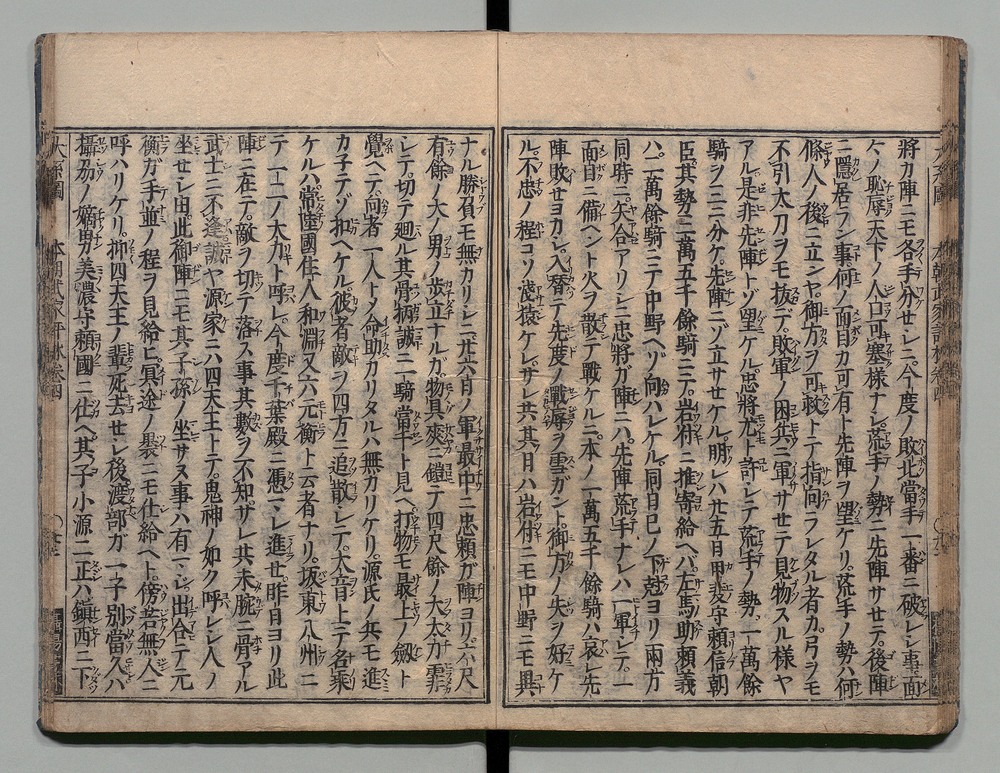 將カ陣ニモ各手分セシニ今度ノ敗北當手一番ニ破レシ事面
々ノ恥辱天下ノ人口可塞様ナシ荒手ノ勢ニ先陣サセテ後陣
ニ隠居ラン事何ノ面目カ可有ト先陣ヲ望ケリ荒手ノ勢ハ何
條人ノ後ニ立ンヤ御方ヲ可救トテ指向ラレタル者カ弓ヲモ
不引太刀ヲモ抜デ敗軍ノ困兵ニ軍サセテ見物スル様ヤ
アル是非先陣トゾ望ケル忠將尤ト許シテ荒手ノ勢一萬餘
騎ヲ二ニ分ケ先陣ニゾ立サセケル明レハ廿五日甲斐守頼信朝
臣其勢二萬五千餘騎ニテ岩付ニ推寄給ヘハ左馬助頼義
ハ二萬餘騎ニテ中野ヘゾ向ハレケル同日巳ノ下尅ヨリ兩方
同時ニ矢合アリシニ忠將ガ陣ニハ先陣荒手ナレハ一軍シテ
面目ニ備ヘント火ヲ散テ戰ケルニ本ノ一萬五千餘騎ハ哀レ先
陣敗セヨカシ入替テ先度ノ戰辱ヲ雪ガント御方ノ失ヲ好ケ
ル不忠ノ程コソ淺猿ケレサレ共其日ハ岩付ニモ中野ニモ異
ナル勝負モ無カリシニ廿六日ノ軍最中ニ忠頼ガ陣ヨリ六尺
有餘ノ大ノ男ノ歩立ナルガ物具爽ニ鎧テ四尺餘ノ大太刀
シテ切テ廻ル其骨柄誠ニ一騎當千ト見ヘ打物モ最上ノ劔ト
覺ヘテ向者一人トメ命助カリタルハ無カリケリ源氏ノ兵モ進
カ子テゾ扣ヘケル彼者敵ヲ四方ニ追散シテ大音上テ名乘
ケルハ常陸國住人和淵又六元衡ト云者ナリ坂東八州ニ
テ一二ノ大力ト呼レシ今度千葉殿ニ憑マレ進セ昨日ヨリ此
陣ニ在テ敵ヲ切テ落ス事其數ヲ不知サレ共未腕ニ骨アル
武士ニ不逢誠ヤ源家ニハ四天王トテ鬼神ノ如ク呼レシ人ノ
坐セシ由此御陣ニモ其子孫ノ坐サス事ハ有マシ出合テ元
衡ガ手並ノ程ヲ見給ヒ冥途ノ ニモ仕給ヘト傍若無人ニ
呼ハリケリ抑四天王ノ輩死去セシ後渡部ガ一子別當久ハ
攝刕ノ嫡男美濃守頼國ニ仕ヘ其子小源二正ハ鎭西ニ下
本朝武家評林卷四
大系圖 本朝武家評林卷四